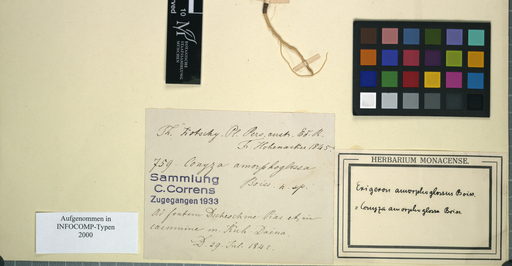 10
BOTANISCHE
STAATSSAMMLUNG
MÜNCHEN
Th. Kotschy. Pl. Pers. austr. Ed. R.
Fr. Hohenacker 1845.
759. Conyza amorphoglossa
Boiss. n. sp.
Sammlung
C. Correns
Zugegangen 1933
Ad fontem Dscheschme Ras et in
cacumine m. Kuh Daëna
D. 29. Jul. 1842.
Aufgenommen in
INFOCOMP-Typen
2000
HERBARIUM MONACENSE.
Erigeron amorphoglossus Boiss.
= Conyza amorphoglossa Boiss.